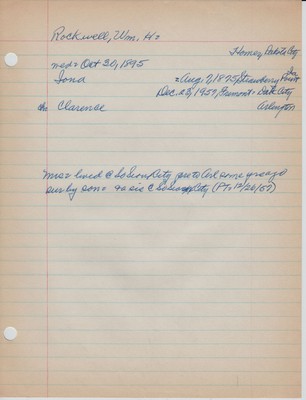 Rockwell, Wm. H=
Homer, Dakota City
med= Oct 30, 1895
Iona = Aug. 2, 1875, Strawberry Point Ia
Dec. 23, 1957, Fremont = Dak City
ch Clarence Arlington
mrs= lived @ So Sioux City, to Arl some yrs ago
surby son = sis @ So Sioux City (PT= 12/26/57)